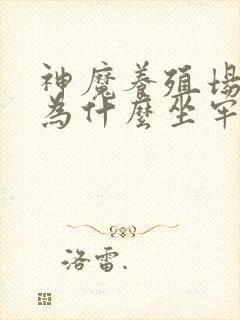 神魔養殖場
為什麼坐牢
洛雷.